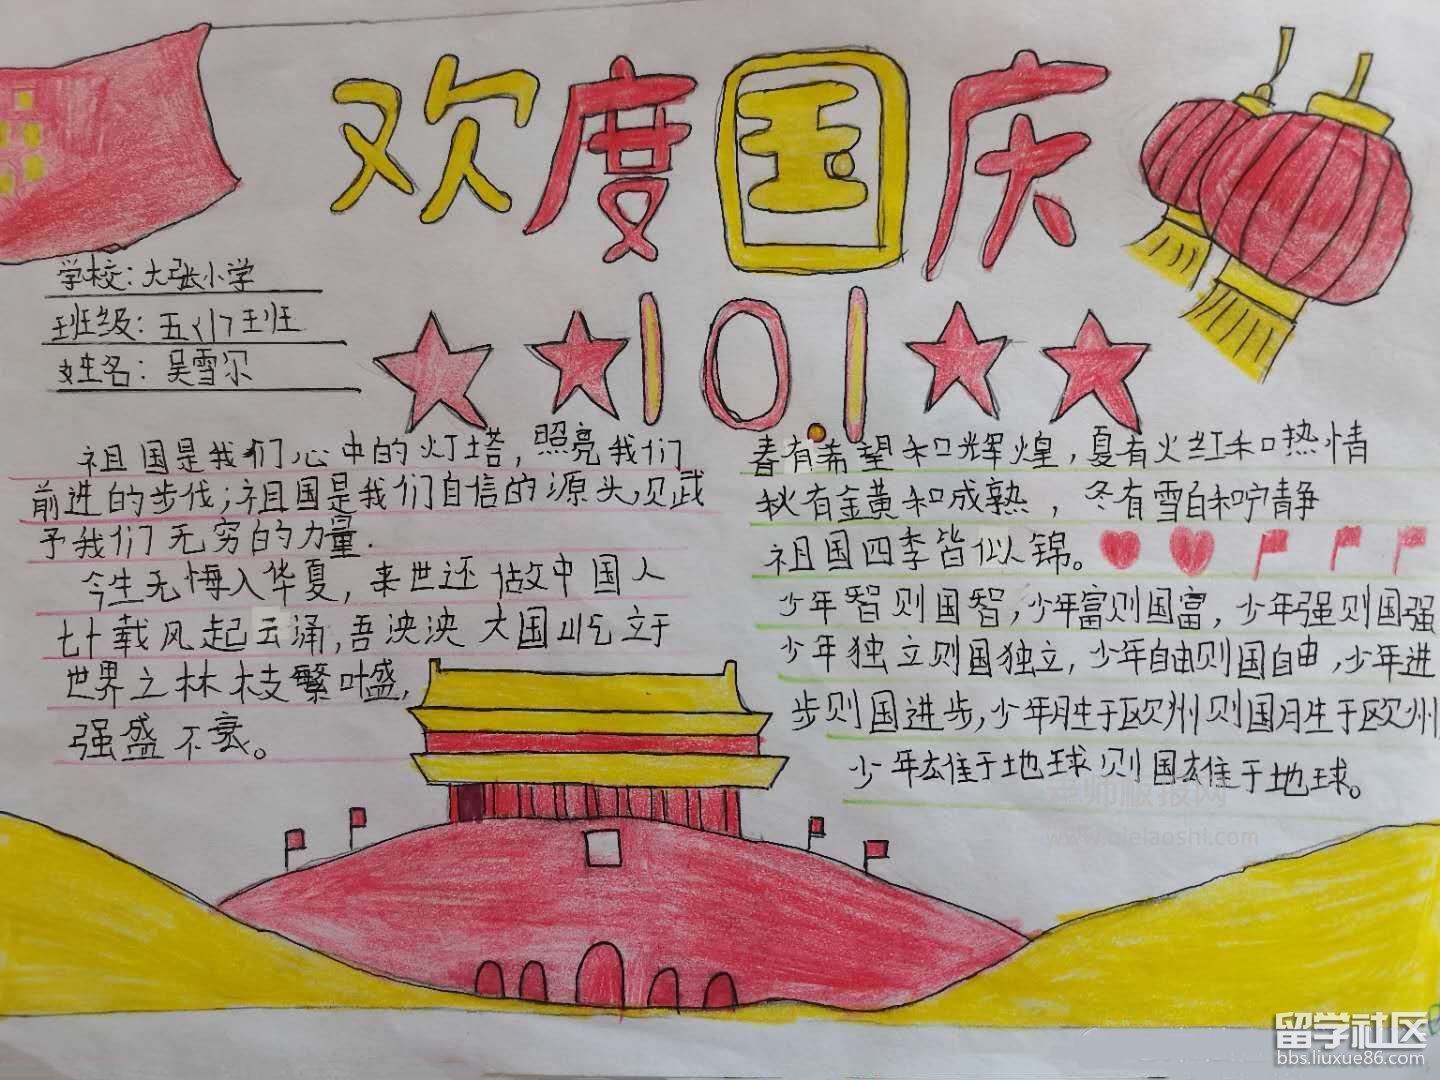 欢度国庆
10.1
学校：大张小学
班级：五（1）班
姓名：吴雪尔
祖国是我们心中的灯塔，照亮我们
前进的步伐；祖国是我们自信的源头，贝武
予我们无穷的力量．
今生无悔入华夏，来世还做中国人
七十载风起云涌，吾泱泱大国屹立于
世界之林枝繁叶盛，
强盛不衰。
春有希望和辉煌，夏有火红和热情
秋有金黄和成熟，冬有雪白和宁静
祖国四季皆似锦。
少年智则国智，少年富则国富，少年强则国强
少年独立则国独立，少年自由则国自由，少年进
步则国进步，少年胜于欧州则国胜于欧州
少年雄于地球则国雄于地球。
老师板报网
留学社区
bbs.liuxue86.com